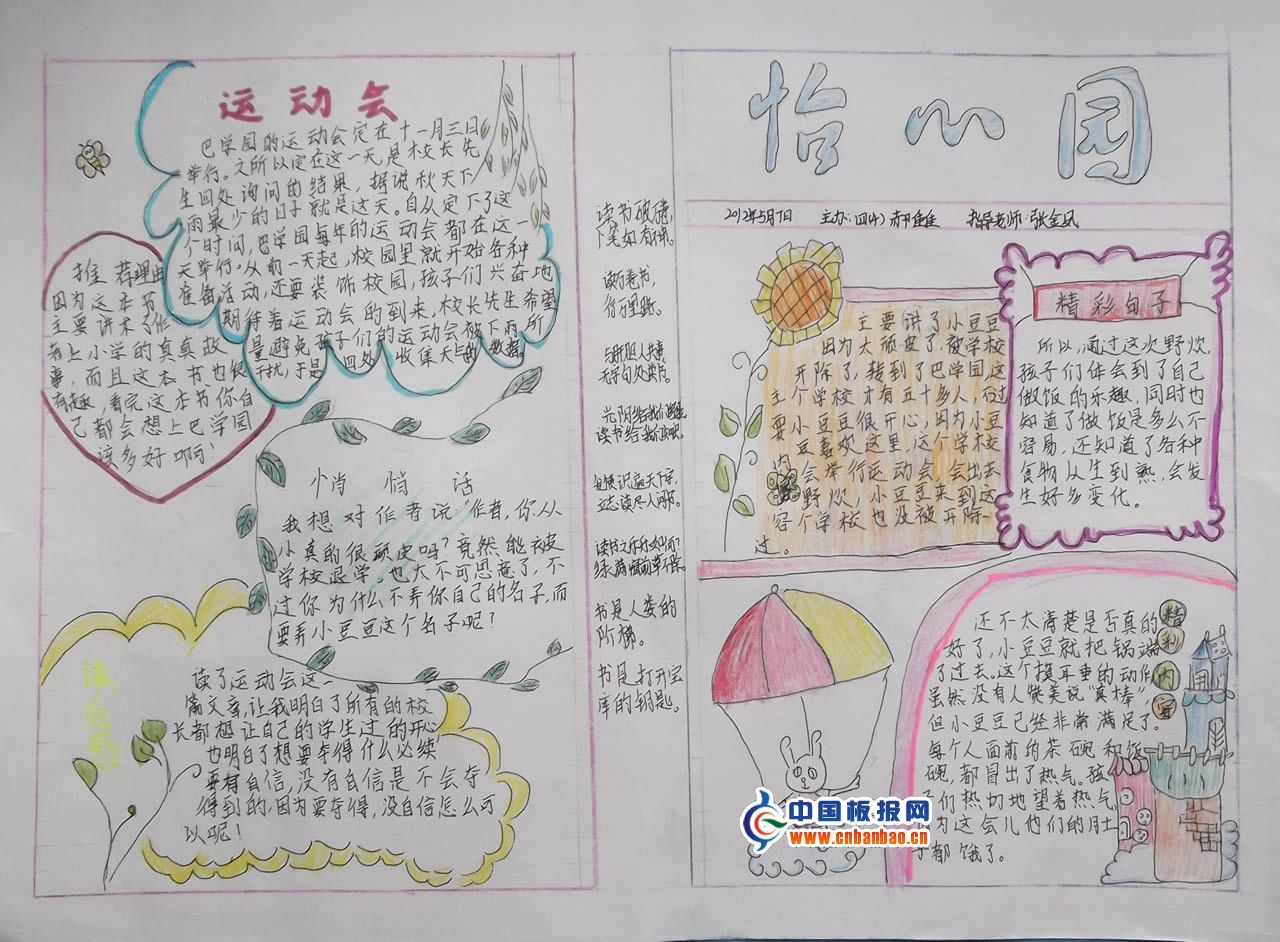 怡心园
2012年5月7日 主办:四(4) 指导老师:张金凤
主要讲了小豆豆
因为太顽皮了,被学校
开除了,转到了巴学园,这
个学校才有五十多人,不过
小豆豆很开心,因为小豆
豆喜欢这里,这个学校
会举行运动会,会出去
野炊,小豆豆来到这
个学校也没被开除
过。
主要内容
精彩句子
所以,通过这次野炊,
孩子们体会到了自己
做饭的乐趣,同时也
知道了做饭是多么不
容易,还知道了各种
食物从生到熟,会发
生好多变化。
精彩内容
还不太清楚是否真的
好了,小豆豆就把锅端
了过去。这个摸耳垂的动作
虽然没有人赞美说“真棒”,
但小豆豆已经非常满足了。
每个人面前的茶碗和饭
碗,都冒出了热气。孩
子们热切地望着热气,
因为这会儿他们的肚
子都饿了。
运动会
巴学园的运动会定在十一月三日
举行。之所以定在这一天,是校长先
生四处询问的结果,据说秋天下
雨最少的日子就是这天。自从定下了这
个时间,巴学园每年的运动会都在这一
天举行,从前一天起,校园里就开始各种
准备活动,还要装饰校园,孩子们兴奋地
期待着运动会的到来,校长先生希望
量避免孩子们的运动会被下雨所
干扰,于是四处收集天气的数据。
推荐理由
因为这本书
主要讲术了作
者上小学的真真故
事,而且这本书也很
有趣,看完这本书,你自
己都会想上巴学园
该多好啊!
悄悄话
我想对作者说:“作者,你从
小真的很顽皮吗?竟然能被
学校退学。也太不可思意了,不
过你为什么不弄你自己的名子,而
要弄小豆豆这个名子呢?
读后感
读了运动会这一
篇文章,让我明白了所有的校
长都想让自己的学生过的开心
也明白了想要夺得什么必续
要有自信,没有自信是不会夺
得到的,因为要夺得,没自信怎么可
以呢!
读书破万卷,
下笔如有神。
读万卷书,
行万里路。
书是人类的
阶梯。
书是打开宝
库的钥匙。
中国板报网
www.cnbanbao.cn